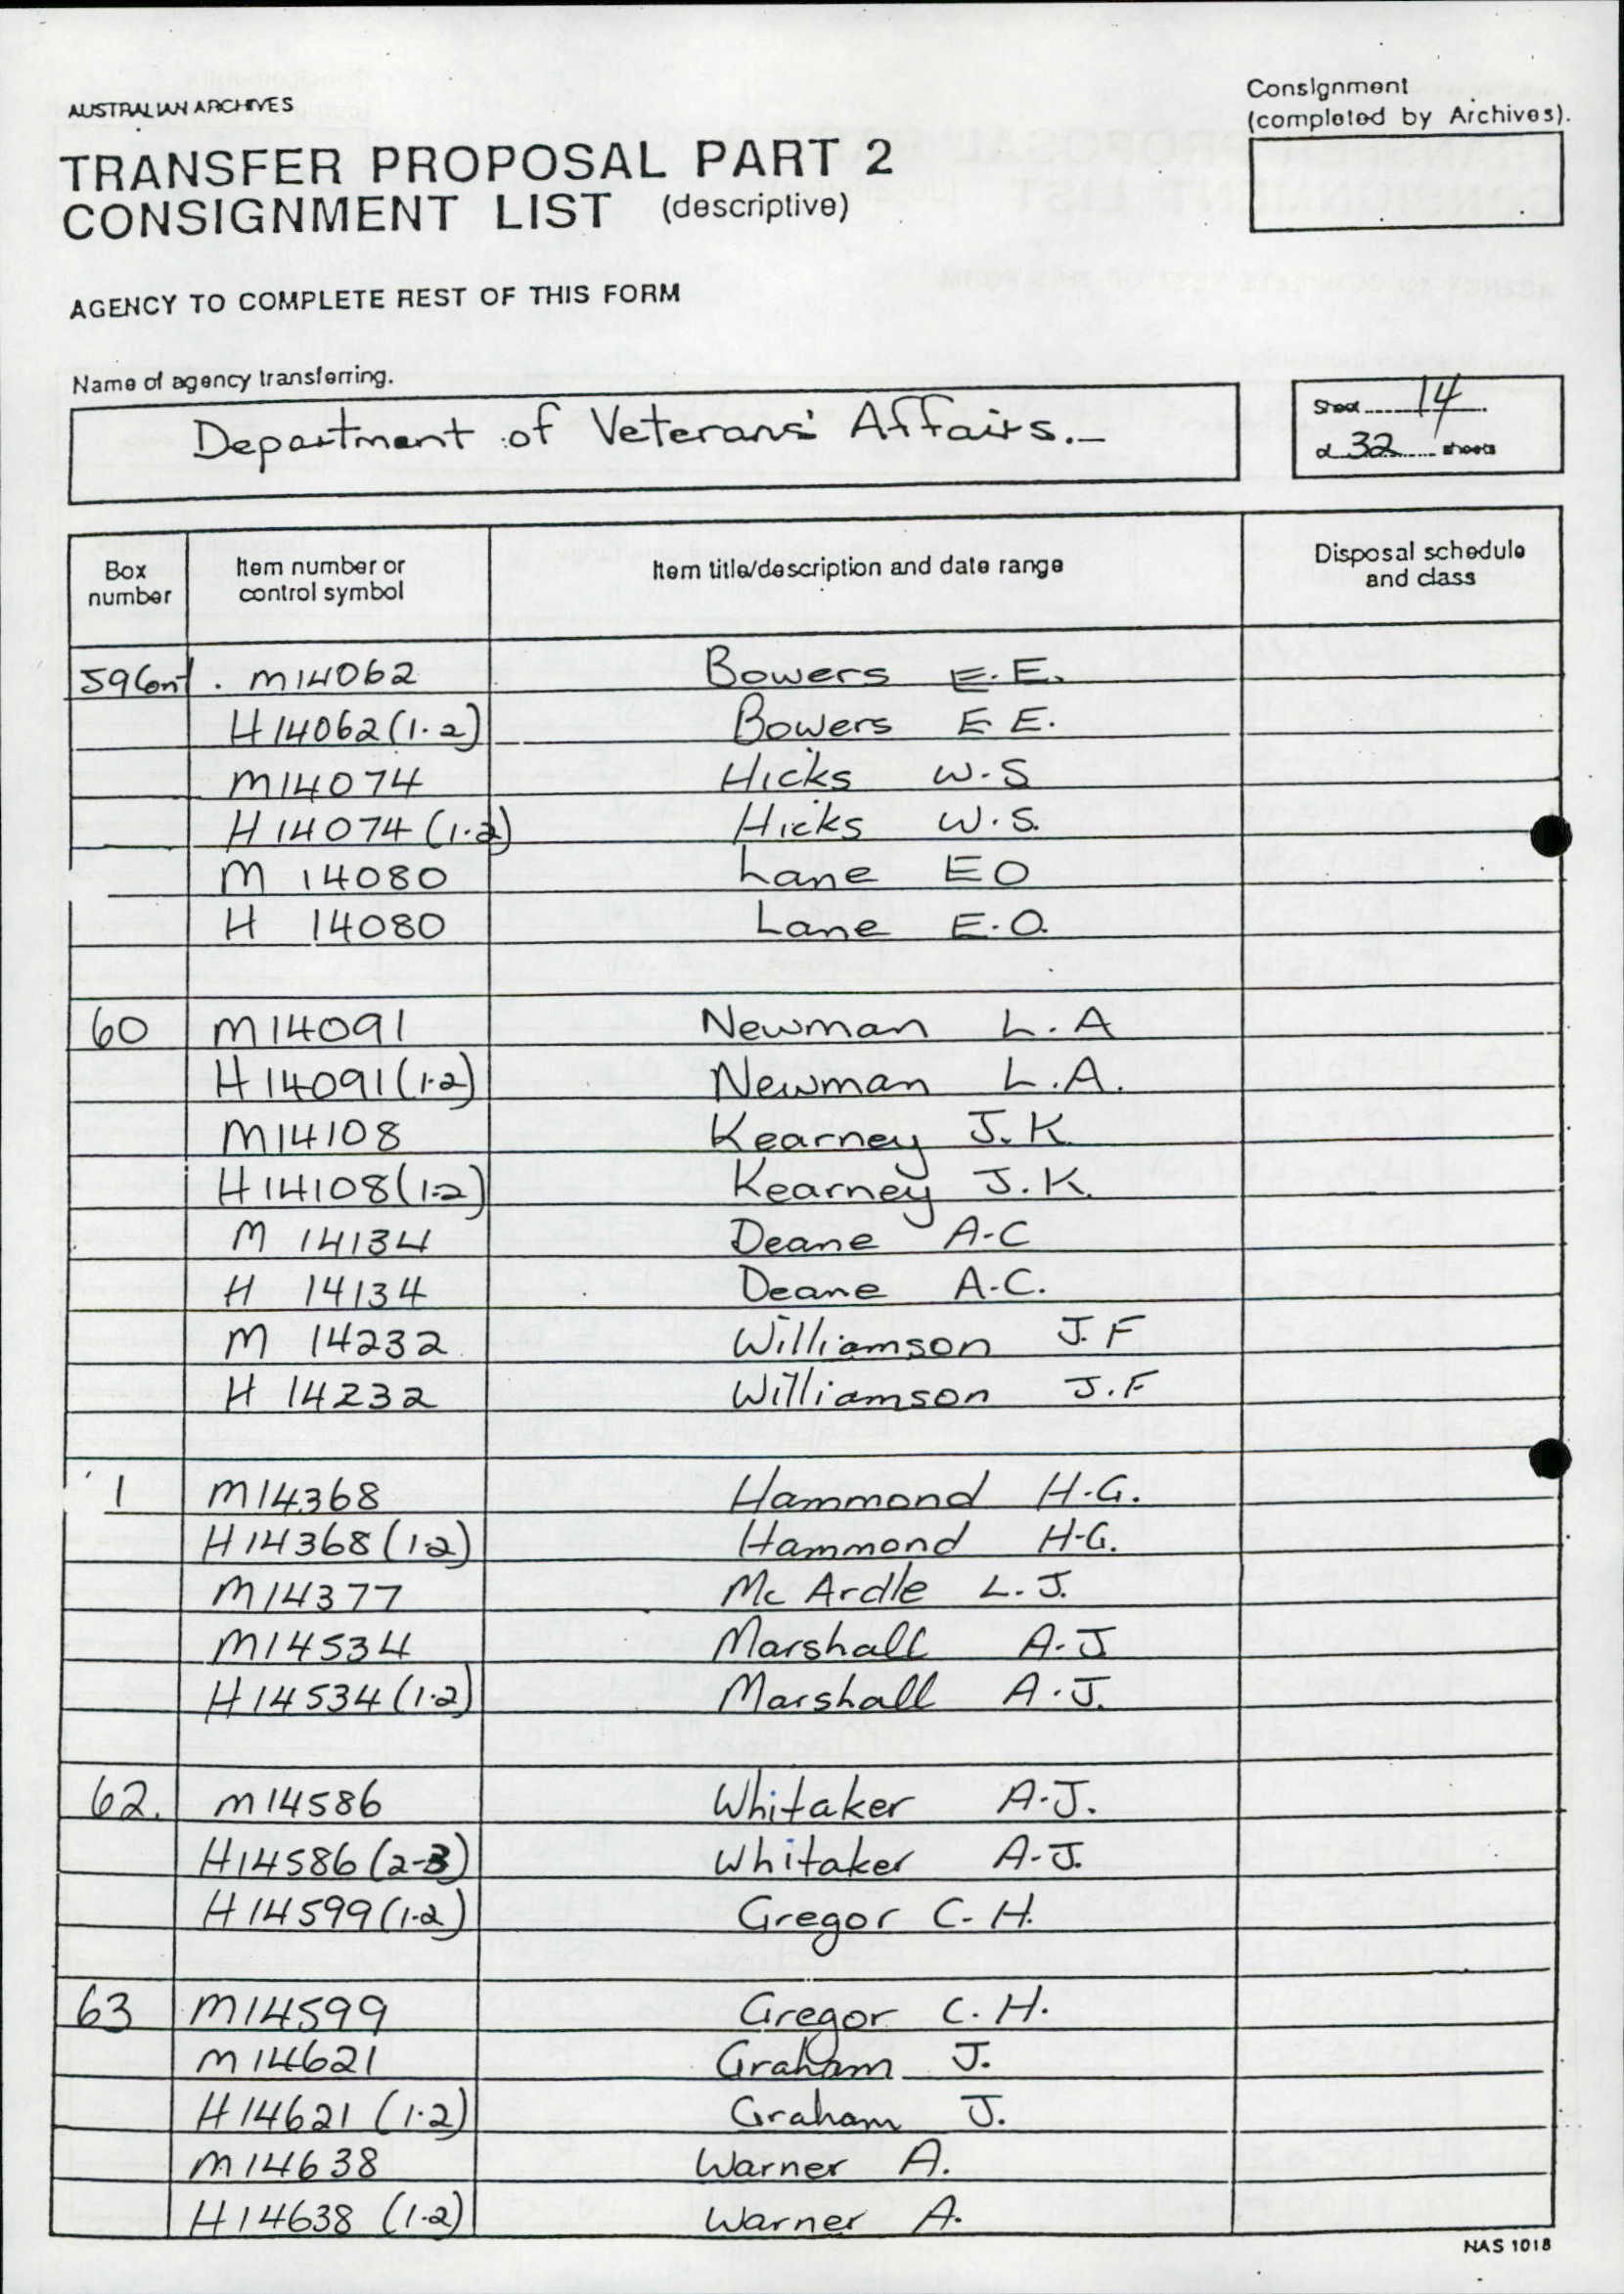 AUSTRALIAN ARCHIVES
Consignment
(completed by Archives).
TRANSFER PROPOSAL PART 2
CONSIGNMENT LIST (descriptive)
AGENCY TO COMPLETE REST OF THIS FORM
Name of agency transferring.
Department of Veterans' Affairs.
Sheet 14
of 32 sheets
Box number
Item number or control symbol
Item title/description and date range
Disposal schedule and class
59 Cont. M14062 Bowers E.E.
H14062(1-2) Bowers E E.
M14074 Hicks W.S
H14074(1-2) Hicks W.S.
M 14080 Lane E O
H 14080 Lane E.O.
60 M14091 Newman L.A
H14091(1-2) Newman L.A.
M14108 Kearney J.K
H14108(1-2) Kearney J.K.
M 14134 Deane A-C
H 14134 Deane A-C.
M 14232 Williamson J.F
H 14232 Williamson J.F
1 M14368 Hammond H-G.
H14368(1-2) Hammond H-G.
M14377 Mc Ardle L.J.
M14534 Marshall A-J
H14534(1-2) Marshall A.J.
62. M14586 Whitaker A.J.
H14586(2-3) Whitaker A-J.
H14599(1-2) Gregor C.H.
63 M14599 Gregor C.H.
M14621 Graham J.
H14621(1-2) Graham J.
M14638 Warner A.
H14638 (1-2) Warner A.
NAS 1018